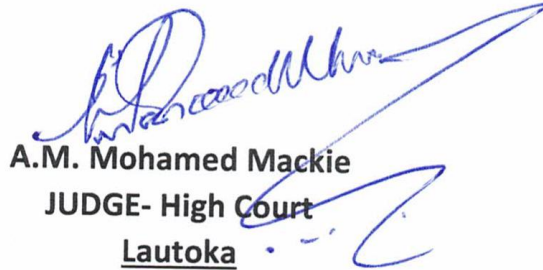 A.M. Mohamed Mackie
JUDGE- High Court
Lautoka